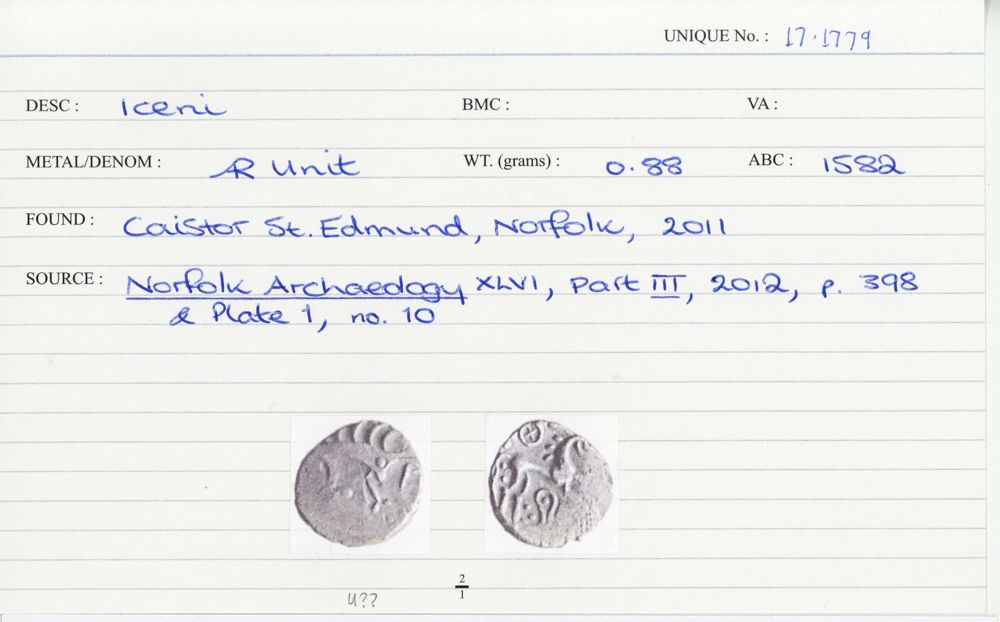 UNIQUE No. : 17.1779
DESC : Iceni BMC : VA :
METAL/DENOM : AR Unit WT. (grams) : 0.88 ABC : 1582
FOUND : Caistor St. Edmund, Norfolk, 2011
SOURCE : Norfolk Archaeology XLVI, Part III, 2012, p. 398
& Plate 1, no. 10
2
1
U??